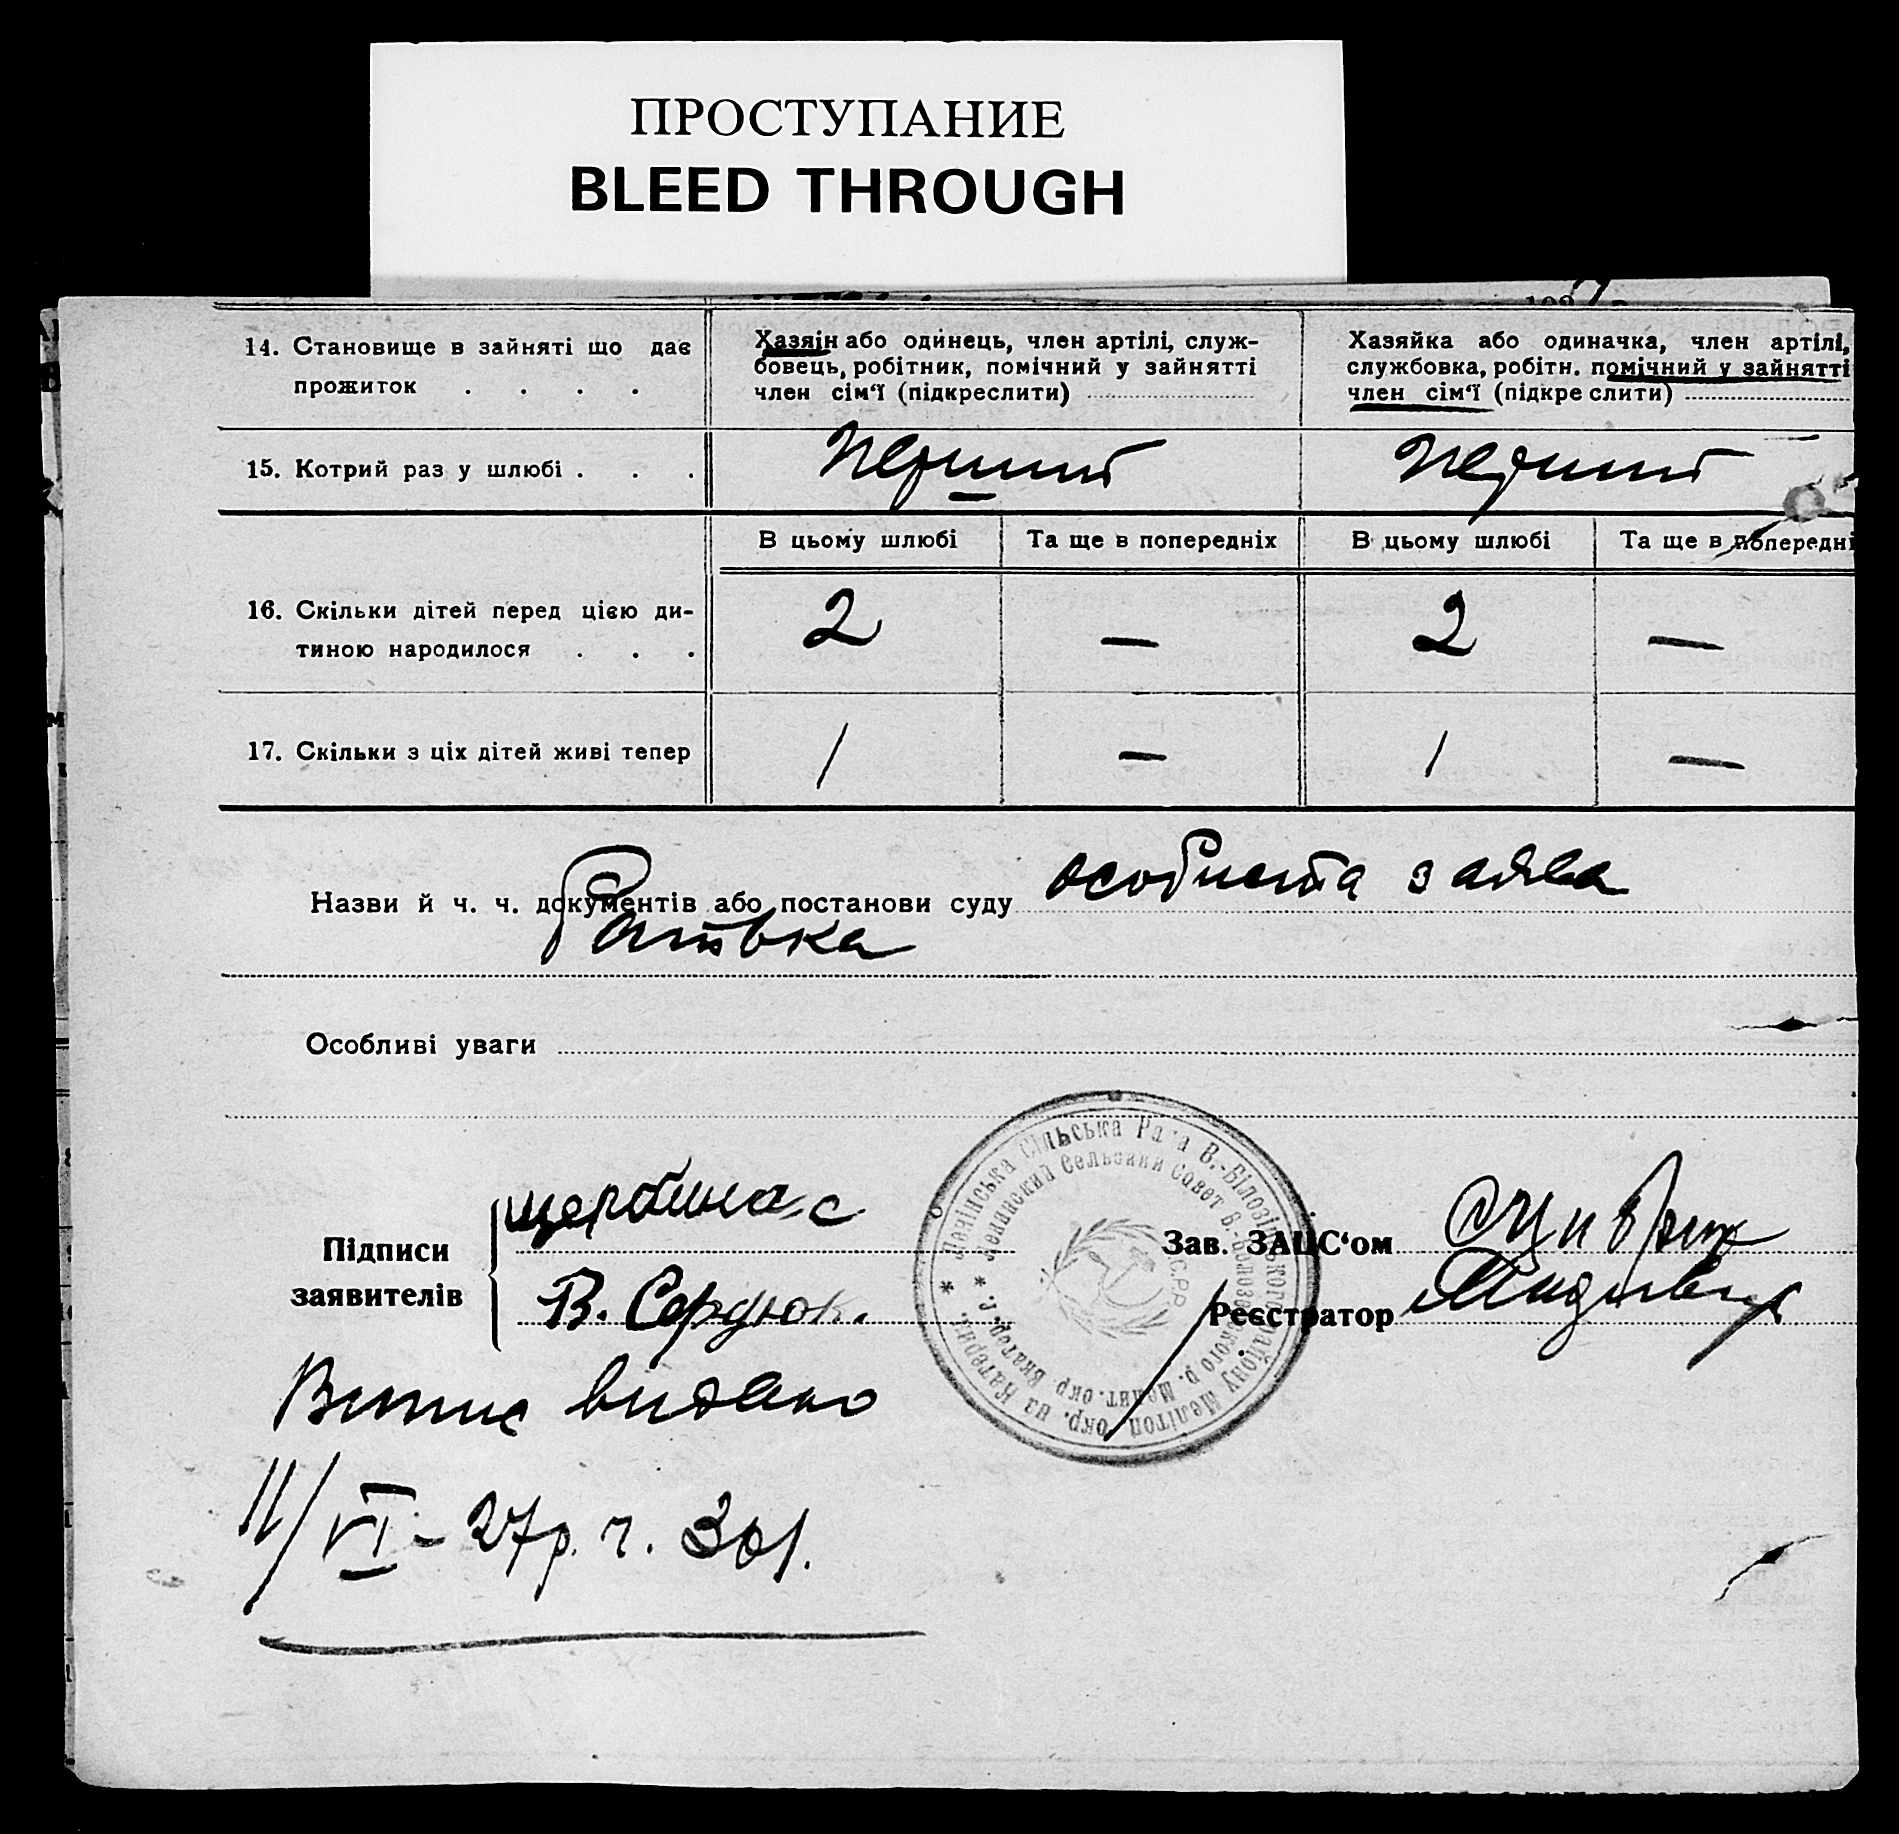 ПРОСТУПАНИЕ
BLEED THROUGH
14. Становище в зайняті що дає
прожиток . . . .
Хазяїн або одинець, член артілі, служ-
бовець, робітник, помічний у зайнятті
член сім‘ї (підкреслити)
Хазяйка або одиначка, член артілі,
службовка, робітн. помічний у зайнятті
член сім‘ї (підкре слити)
15. Котрий раз у шлюбі . . .
перший
перший
В цьому шлюбі
Та ще в попередніх
В цьому шлюбі
Та ще в попередні
16. Скільки дітей перед цією ди-
тиною народилося . . .
2
—
2
—
17. Скільки з ціх дітей живі тепер
1
—
1
—
Назви й ч. ч. документів або постанови суду особиста заява
батька
Особливі уваги
Підписи
заявителів
щербина с
В. Сердюк.
Зав. ЗАЦС‘ом
Реєстратор
* Ленінська Сільська Рада В.-Білозірського району Мелітоп. окр. на Катерин.
* Ленинский Сельский Совет В.-Белозерского р. Мелит. окр. Екатер. г.
Випис видано
11/VI – 27р. ч. 301.